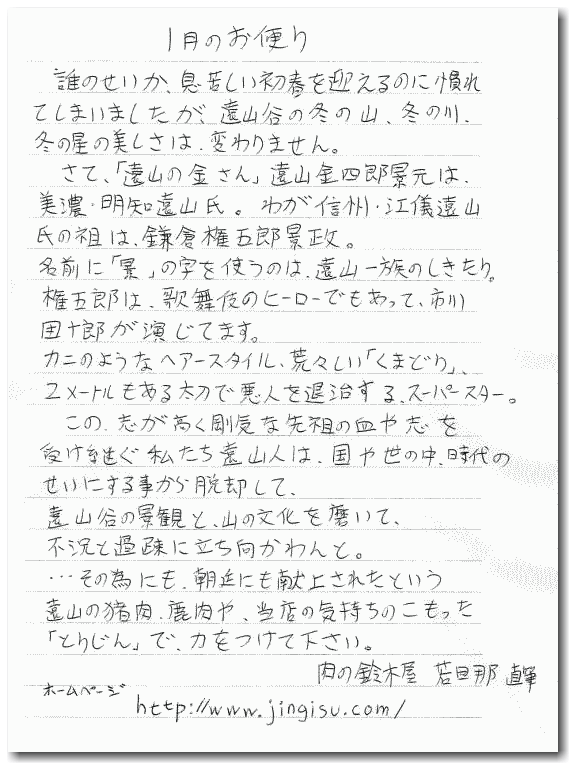 1月のお便り
誰のせいか、息苦しい初春を迎えるのに慣れ
てしまいましたが、遠山谷の冬の山、冬の川、
冬の星の美しさは、変わりません。
さて、「遠山の金さん」遠山金四郎景元は、
美濃・明知遠山氏。わが信州・江儀遠山
氏の祖は、鎌倉権五郎景政。
名前に「景」の字を使うのは、遠山一族のしきたり。
権五郎は、歌舞伎のヒーローでもあって、市川
団十郎が演じてます。
カニのようなヘアースタイル、荒々しい「くまどり」、
2メートルもある太刀で悪人を退治する、スーパースター。
この、志が高く剛気な先祖の血や志を
受け継ぐ私たち遠山人は、国や世の中、時代の
せいにする事から脱却して、
遠山谷の景観と、山の文化を磨いて、
不況と過疎に立ち向かわんと。
…その為にも、朝廷にも献上されたという
遠山の猪肉、鹿肉や、当店の気持ちのこもった
「とりじん」で、力をつけて下さい。
肉の鈴木屋 若旦那 直筆
ホームページ
http://www.jingisu.com/